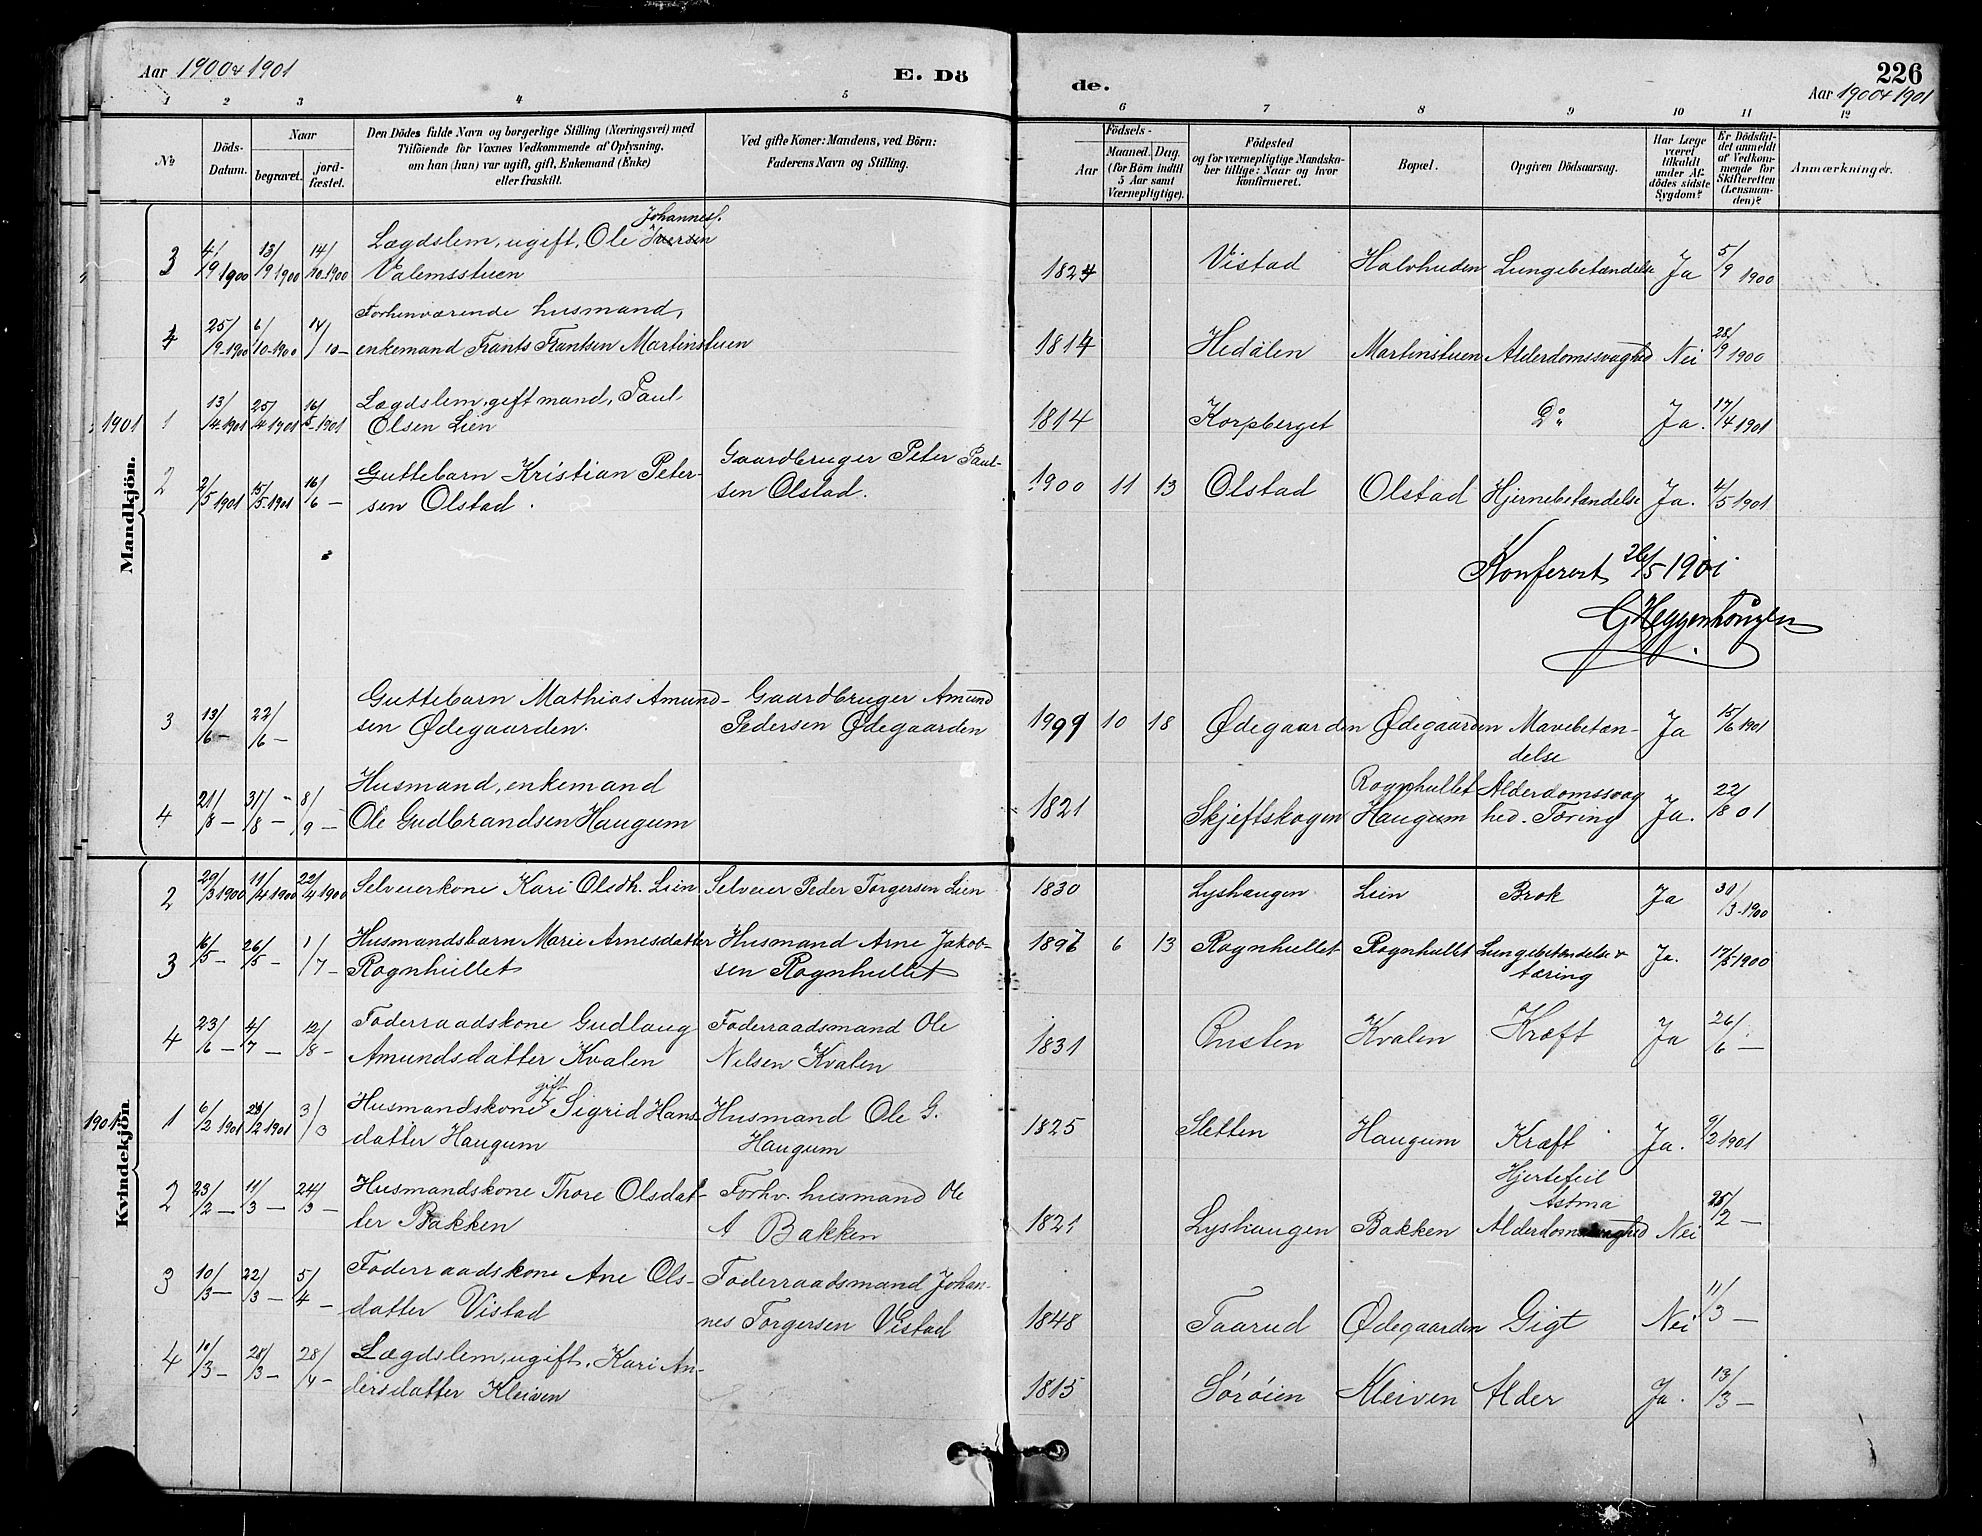 Aar 1900 & 1901
E. Dö
de.
226
Aar 1900 & 1901
1 2 3 4 5 6 7 8 9 10 11 12
No
Döds-
Datum.
Naar
begravet.
jord-
fæstet.
Den Dödes fulde Navn og borgerlige Stilling (Næringsvei) med
Tilföiende for Voxnes Vedkommende af Oplysning,
om han (hun) var ugift, gift, Enkemand (Enke)
eller fraskilt.
Ved gifte Koner: Mandens, ved Börn:
Faderens Navn og Stilling.
Födsels-
Aar
Maaned. Dag.
(for Börn indtil
5 Aar samt
Værnepligtige).
Födested
og for værnepligtige Mandska-
ber tillige: Naar og hvor
konfirmeret.
Bopæl.
Opgiven Dödsaarsag.
Har Læge
været
tilkaldt
under Af-
dödes sidste
Sygdom?
Er Dödsfal-
det anmeldt
af Vedkom-
mende for
Skifteretten
(Lensman-
den)?
Anmærkninger.
Mandkjön.
Johannes.
3 4/9 1900 13/9 1900 14/10-1900 Lægdslem, ugift, Ole Iversen
Valemsstuen
1824 Vistad Halvhuden Lungebetændelse Ja 5/9 1900
Forhenværende husmand,
4 25/9-1900 6/10-1900 14/10- enkemand Frants Frantsen Martinstuen
1814 Hedalen Martinstuen Alderdomssvaghed Nei 28/9 1900
1901 1 13/4-1901 25/4 1901 16/5-1901 Lægdslem, gift mand, Paul
Olsen Lien
1814 Korpberget Do Ja. 17/4 1901
2 2/5 1901 15/5-1901 16/6 - Guttebarn Kristian Peter-
sen Olstad.
Gaardbruger Peter Paul-
sen Olstad.
1900 11 13 Olstad Olstad Hjernebetændelse Ja. 4/5 1901
Konferert 26/5 1901
G Heggenhougen
3 13/6 - 22/6 - Guttebarn Mathias Amund-
sen Ødegaarden.
Gaardbruger Amund
Pedersen Ødegaarden
1999 10 18 Ødegaarden Ødegaarden Mavebetæn-
delse
Ja 15/6 1901
4 21/8 - 31/8 - 8/9 - Husmand, enkemand
Ole Gudbrandsen Haugum
1821 Skjeftskogen Rognhullet
Haugum
Alderdomssvag
hed. Tæring
Ja. 22/8 01
Kvindekjön
2 29/3 1900 11/4 1900 22/4 1900 Selveierkone Kari Olsdh. Lien Selveier Peder Torgersen Lien
1830 Lyshaugen Lien Brok Ja 30/3-1900
3 16/5 - 26/5 - 1/7 - Husmandsbarn Marie Arnesdatter
Rognhullet
Husmand Arne Jakob-
sen Rognhullet
1897 6 13 Rognhullet Rognhullet Lungebetændelse &
tæring
Ja. 17/5 1900
4 23/6 - 4/7 - 12/8 - Føderraadskone Gudlaug
Amundsdatter Kvalen
Føderraadsmand Ole
Nilsen Kvalen
1831 Kvalen Kræft Ja 26/6 -
1901 1 6/2 1901 1901 3/3 Husmandskone gift Sigrid Hans
datter Haugum
Husmand Ole G.
Haugum
1825 Sletten Haugum Kræft Ja. 9/2 1901
2 23/2 - 11/3 - 24/3 - Husmandskone Thore Olsdat-
ter Bakken
Forhv. husmand Ole
A Bakken
1821 Lyshaugen Bakken Hjertefeil
Astma
Alderdomssvaghed
Nei 25/2 -
3 10/3 - 22/3 - 5/4 - Føderraadskone Ane Ols-
datter Vistad
Føderraadsmand Johan-
nes Torgersen Vistad
1848 Taarud Ødegaarden Gigt Nei 11/3 -
4 10/3 - 28/3 - 28/4 - Lægdslem, ugift, Kari An-
dersdatter Kleiven
1815 Sørøien Kleiven Alder Ja. 13/3 -